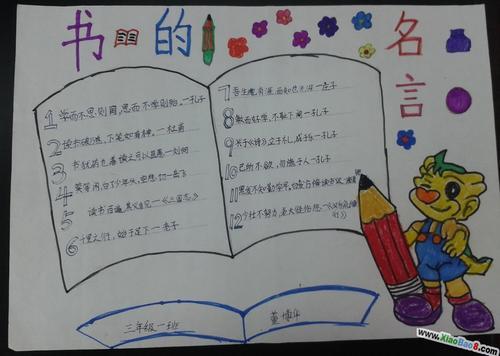 书的
名言
1 学而不思则罔,思而不学则殆。—孔子
2 读书破万卷,下笔如有神。—杜甫
3 书犹药也,善读之可以医愚—刘向
4 莫等闲,白了少年头,空悲切—岳飞
5 读书百遍,其义自见—《三国志》
6 千里之行,始于足下—老子
7 吾生也有涯,而知也无涯—庄子
8 敏而好学,不耻下问—孔子
9 兴于《诗》,立于礼,成于乐—孔子
10 己所不欲,勿施于人—孔子
11 黑发不知勤学早,白首方悔读书迟
12 少壮不努力,老大徒伤悲
三年级一班
董博华
www.XiaoBao8.com